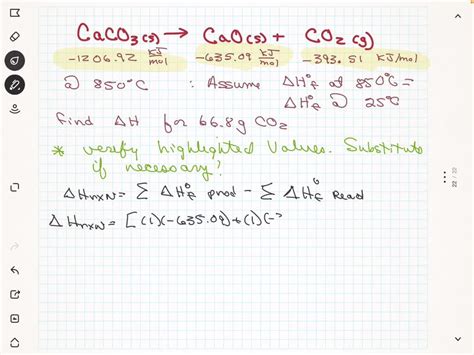 CaCO3(s) → CaO(s) + CO2(g)
-1206.92 kJ/mol -635.09 kJ/mol -393.51 kJ/mol
@ 850°C : Assume ΔH°f at 850°C =
ΔH°f @ 25°C
find ΔH for 66.8g CO2
* verify highlighted values. Substitute
if necessary?
ΔHrxn = Σ ΔH°f prod - Σ ΔH°f React
ΔHrxn = [(1)(-635.09)+(1)(-3
22 / 22